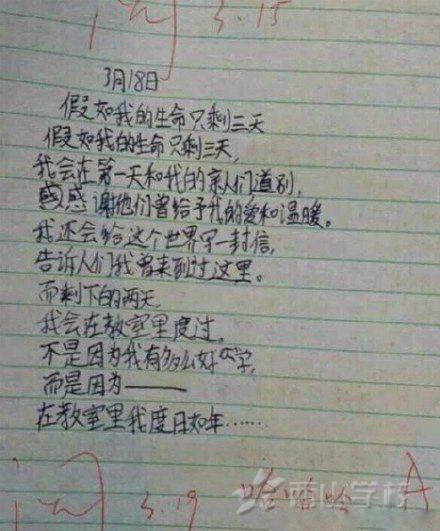 阅 3.15
3月18日
假如我的生命只剩三天
假如我的生命只剩三天,
我会在第一天和我的亲人们道别,
感谢他们曾给予我的爱和温暖。
我还会给这个世界写一封信,
告诉人们我曾来到过这里。
而剩下的两天
我会在教室里度过,
不是因为我有多么好学,
而是因为——
在教室里我度日如年……
阅 3.19 哈哈哈 A
西山学校